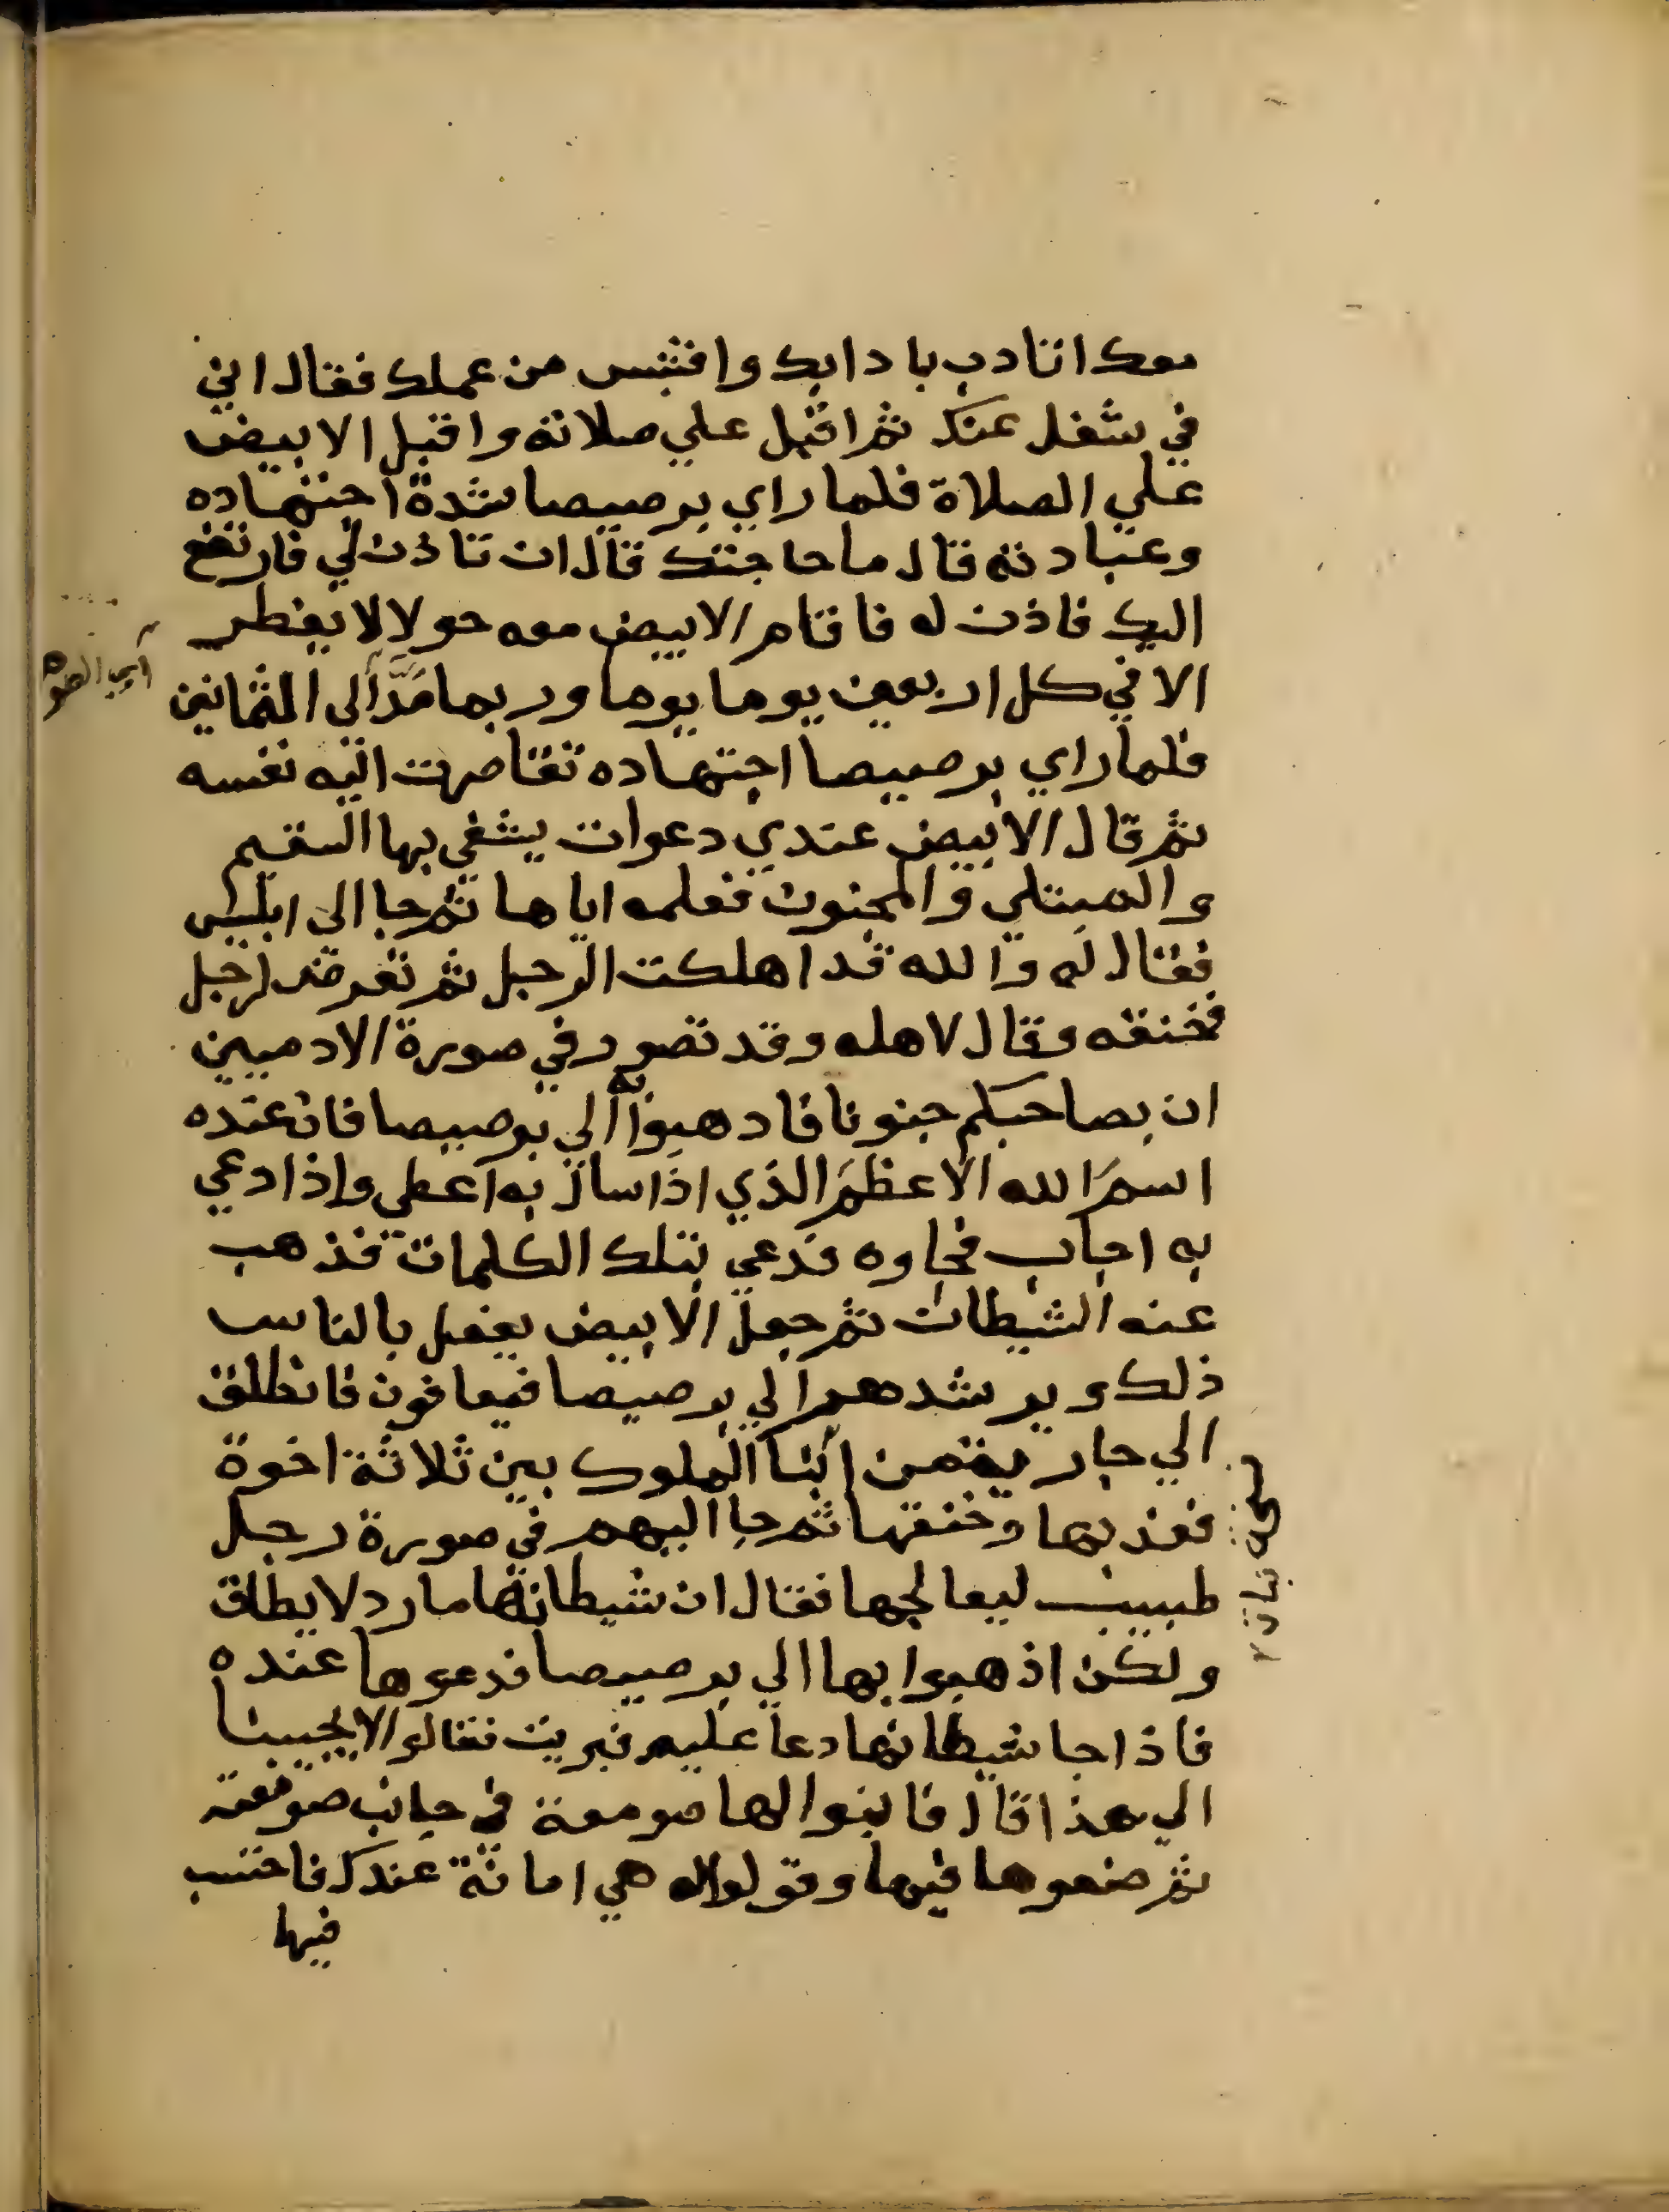 معك اتادب بادابك واقتبس من عملك فقال اني
في شغل عنك ثم اقبل علي صلاته واقبل الابيض
علي الصلاة فلما راي برصيصا شدة اجتهاده
وعبادته قال ما حاجتك قال ان تاذن لي فارتفع
اليك فاذن له فاقام الابيض معه حولا لا يفطر
الا في كل اربعين يوما يوما وربما مَدَّ الي الثمانين
اي الصوم
فلما راي برصيصا اجتهاده تقاصرت اليه نفسه
ثم قال الابيض عندي دعوات يشفي بها السقيم
والمبتلي والمجنون فعلمه اياها ثم جا الى ابليس
فقال له والله قد اهلكت الرجل ثم تعرض لرجل
فخنقه وقال لاهله وقد تصور في صورة الادميين
ان بصاحبكم جنونا فادهبوا به الي برصيصا فان عنده
اسم الله الاعظم الذي اذا سال به اعطى واذا دعي
به اجاب فجاوه فدعي بتلك الكلمات فذهب
عنه الشيطان ثم جعل الابيض يفعل بالناس
ذلك ويرشدهم الي برصيصا فيعافون فانطلق
الي جارية من ابنا الملوك بين ثلاثة اخوة
فعذبها وخنقها ثم جا اليهم في صورة رجل
طبيب ليعالجها فقال ان شيطانها مارد لا يطاق
ولكن اذهبوا بها الي برصيصا فدعوها عنده
فاذا جا شيطانها دعا عليه فبريت فقالوا لا يجيبنا
الي هذا قال فابنوا لها صومعة في جانب صومعته
ثم ضعوها فيها وقولوا له هي امانة عندك فاحتسب
فيها